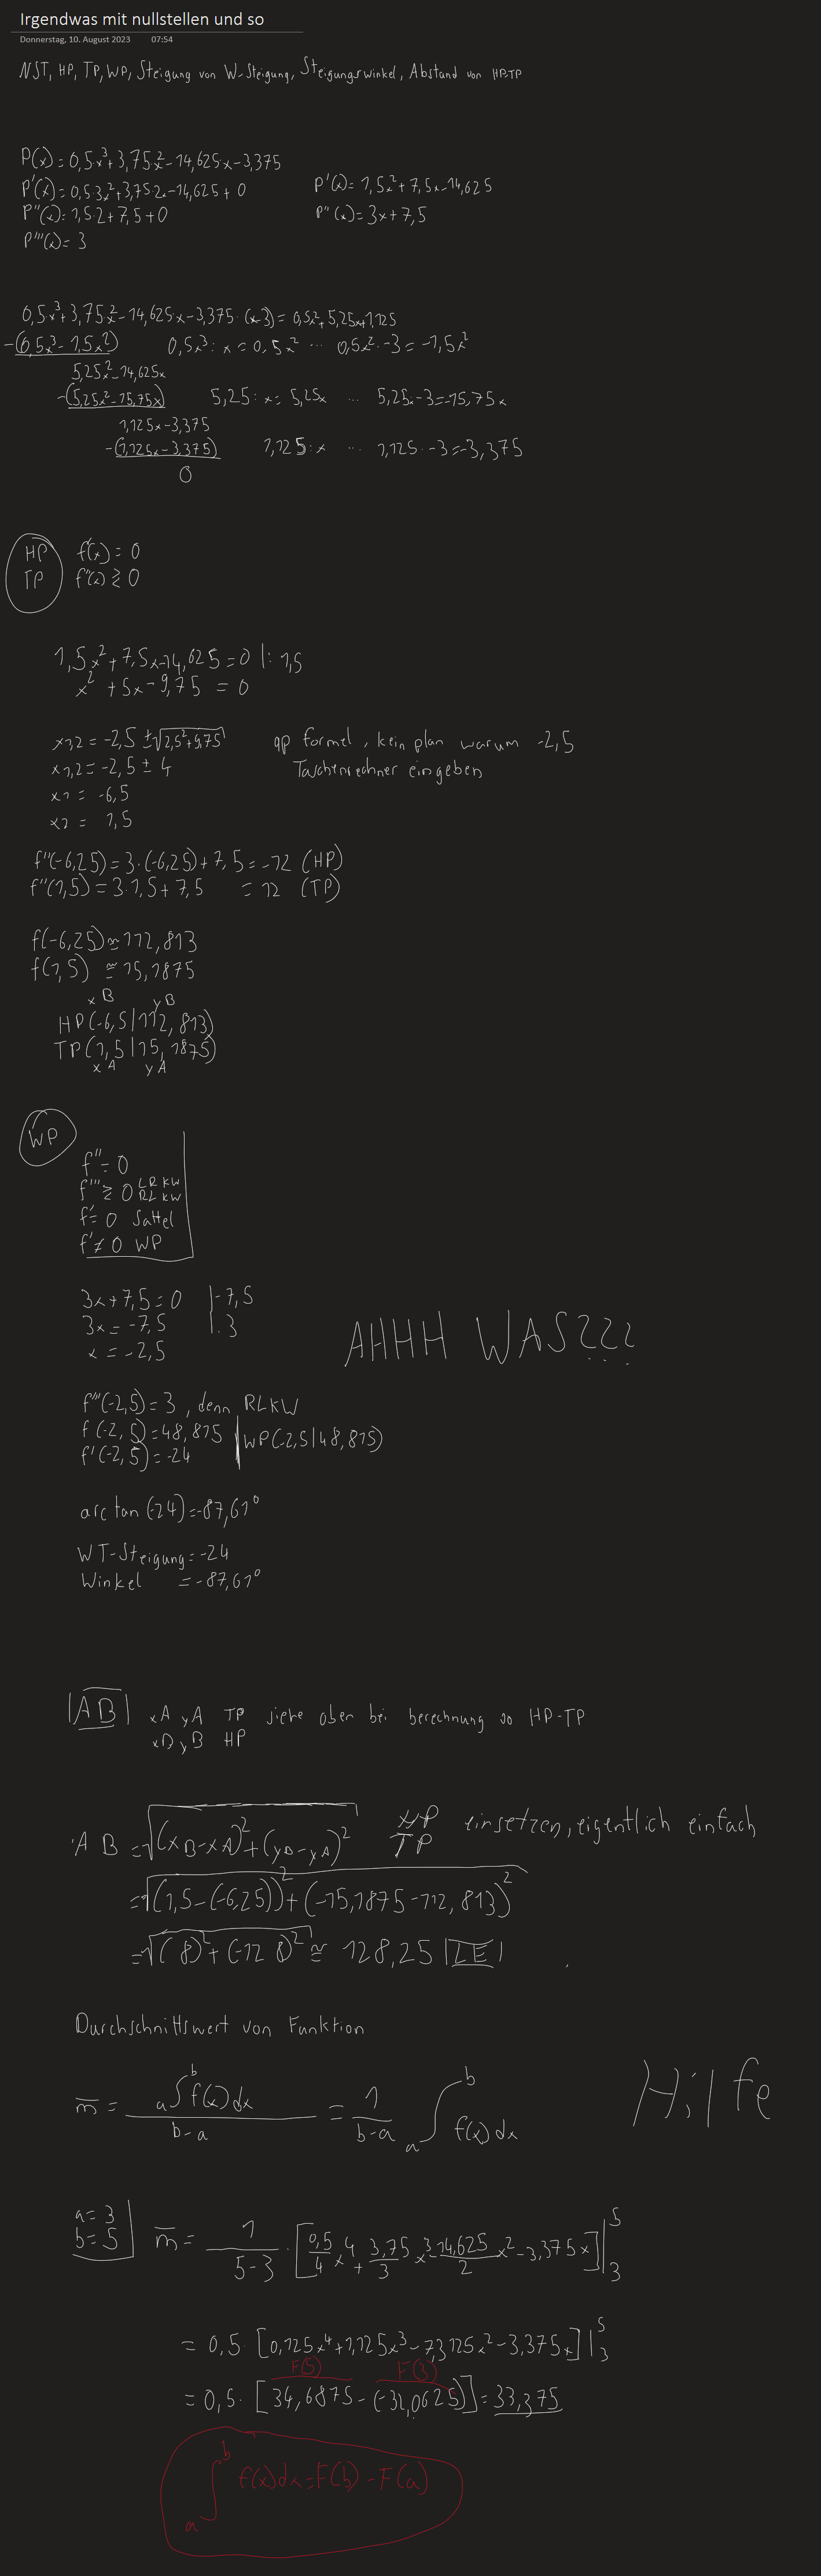 Irgendwas mit nullstellen und so
Donnerstag, 10. August 2023 07:54
NST, HP, TP, WP, Steigung von W-Steigung, Steigungswinkel, Abstand von HP-TP
P(x)=0,5·x³+3,75·x²-14,625·x-3,375
P'(x)=0,5·3x²+3,75·2x-14,625+0 P'(x)=1,5x²+7,5x-14,625
P''(x)=1,5·2+7,5+0 P''(x)=3x+7,5
P'''(x)=3
0,5x³+3,75x²-14,625x-3,375·(x-3)=0,5x²+5,25x+1,125
-(0,5x³-1,5x²) 0,5x³:x=0,5x² ... 0,5x²·-3=-1,5x²
5,25x²-14,625x
-(5,25x²-15,75x) 5,25:x=5,25x ... 5,25x·-3=-15,75x
1,125x-3,375
-(1,125x-3,375) 1,125:x ... 1,125·-3=-3,375
0
HP f'(x)=0
TP f''(x)≷0
1,5x²+7,5x-14,625=0 |:1,5
x²+5x-9,75=0
x1,2=-2,5±√2,5²+9,75 qp formel, kein plan warum -2,5
x1,2=-2,5±4 Taschenrechner eingeben
x1=-6,5
x2=1,5
f''(-6,25)=3·(-6,25)+7,5=-12 (HP)
f''(1,5)=3·1,5+7,5=12 (TP)
f(-6,25)≈112,813
f(1,5)≈15,1875
xB yB
HP(-6,5|112,813)
TP(1,5|15,1875)
xA yA
WP
f''=0
f'''≷0 LRKW RLKW
f'=0 Sattel
f'≠0 WP
3x+7,5=0 |-7,5
3x=-7,5 |:3
x=-2,5
AHHH WAS???
f'''(-2,5)=3, denn RLKW
f(-2,5)=48,875 | WP(-2,5|48,875)
f'(-2,5)=-24
arctan(-24)=-87,61°
WT-Steigung=-24
Winkel =-87,61°
|AB| xA yA TP siehe oben bei berechnung vo HP-TP
xB yB HP
AB=√(xB-xA)²+(yB-yA)² HP einsetzen, eigentlich einfach
TP
=√(1,5-(-6,25))²+(-15,1875-112,813)²
=√(8)²+(-128)²≈128,25 |LE|
Durchschnittswert von Funktion
m̅=a∫b f(x)dx / b-a = 1/b-a a∫b f(x)dx
Hilfe
a=3
b=5 m̅=1/5-3·[0,5/4 x⁴+3,75/3 x³-14,625/2 x²-3,375x]|5 3
=0,5·[0,125x⁴+1,125x³-7,3125x²-3,375x]|5 3
F(5) F(3)
=0,5·[34,6875-(-32,0625)]=33,375
a∫b f(x)dx=F(b)-F(a)